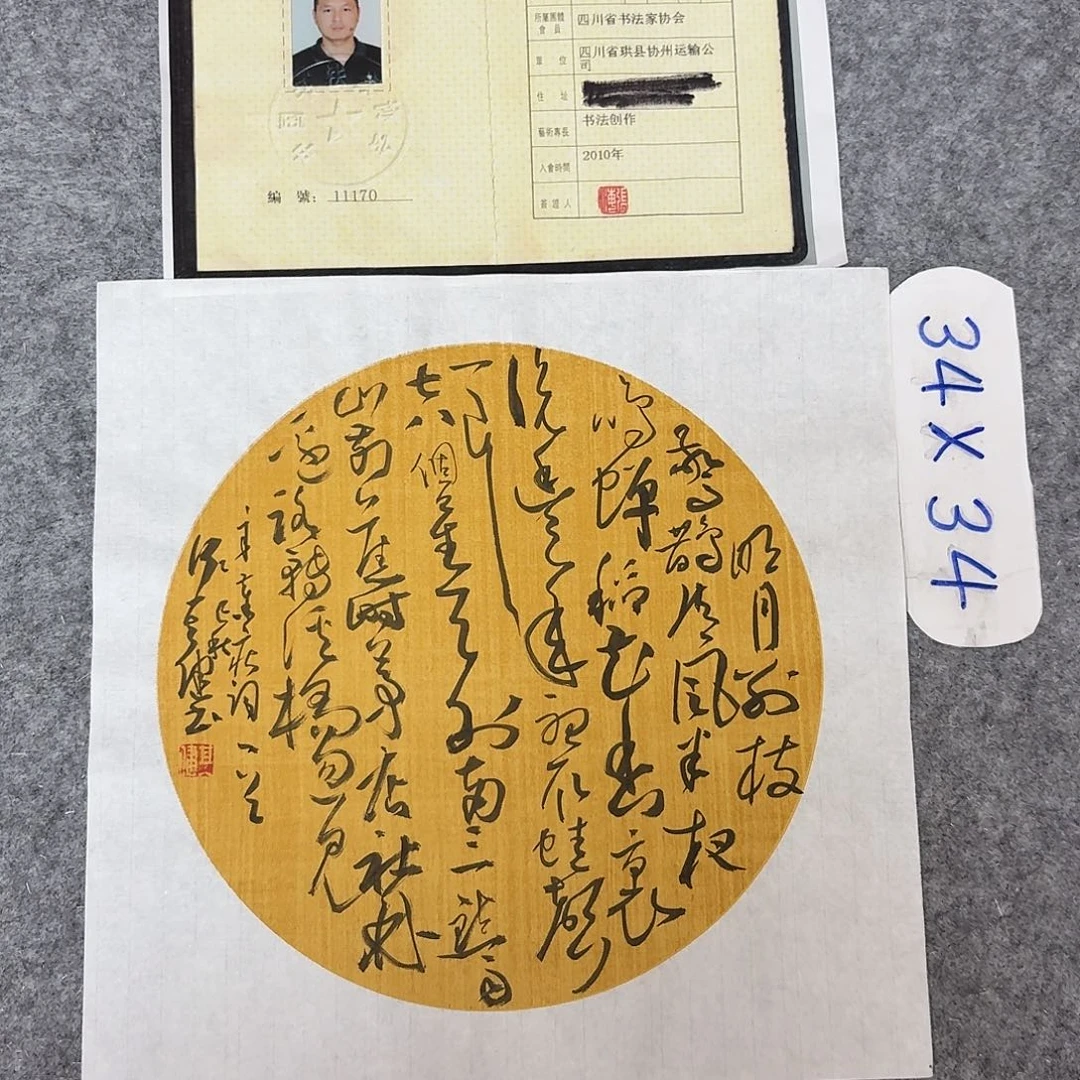 所屬團體會員 四川省书法家协会
單位 四川省珙县协州运输公司
住址
藝術專長 书法创作
入會時間 2010年
簽證人
編號：11170
34 X 34
明月别枝
驚鵲清风半夜
鸣蝉稻花香裏
说豐年聽取蛙聲
一片
七八個星天外兩三點雨
山前舊時茅店社林
邊路轉溪橋忽見
辛棄疾词一首